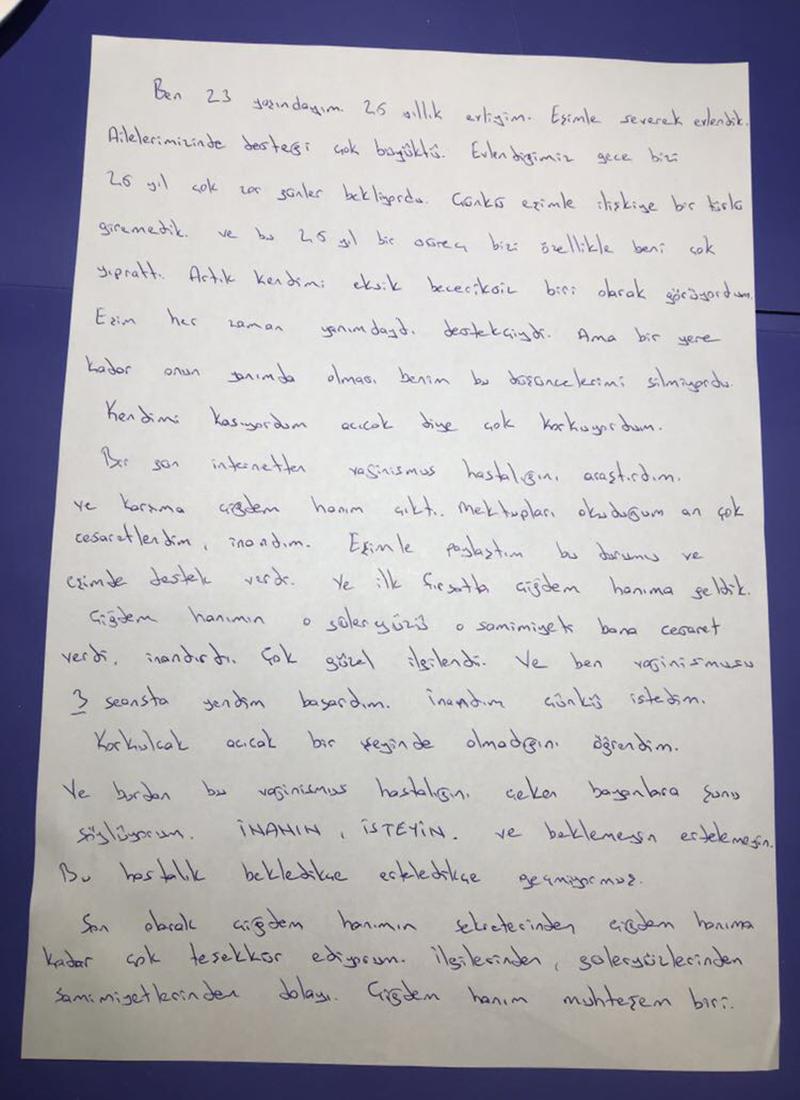 Ben 23 yaşındayım. 2,5 yıllık evliyim. Eşimle severek evlendik.
Ailelerimizinde desteği çok büyüktü. Evlendiğimiz gece bizi
2,5 yıl çok zor günler bekliyordu. Çünkü eşimle ilişkiye bir türlü
giremedik. ve bu 2,5 yıl bir süreç bizi özellikle beni çok
yıprattı. Artık kendimi eksik beceriksiz biri olarak görüyordum.
Eşim her zaman yanımdaydı. destekçiydi. Ama bir yere
kadar onun yanımda olması benim bu düşüncelerimi silmiyordu.
Kendimi kasıyordum acıcak diye çok korkuyordum.
Bir gün internetten vaginismus hastalığını araştırdım.
ve karşıma Çiğdem hanım çıktı. Mektupları okuduğum an çok
cesaretlendim, inandım. Eşimle paylaştım bu durumu ve
eşimde destek verdi. Ve ilk fırsatta Çiğdem hanıma geldik.
Çiğdem hanımın o güleryüzü o samimiyeti bana cesaret
verdi, inandırdı. Çok güzel ilgilendi. Ve ben vaginismusu
3 seansta yendim başardım. İnandım çünkü istedim.
Korkulcak acıcak bir şeyinde olmadığını öğrendim.
Ve burdan bu vaginismus hastalığını çeken bayanlara şunu
söylüyorum. İNANIN, İSTEYİN. ve beklemeyin ertelemeyin.
Bu hastalık bekledikçe erteledikçe geçmiyormuş.
Son olarak Çiğdem hanımın sekreterinden Çiğdem hanıma
kadar çok teşekkür ediyorum. İlgilerinden, güleryüzlerinden
samimiyetlerinden dolayı. Çiğdem hanım muhteşem biri.